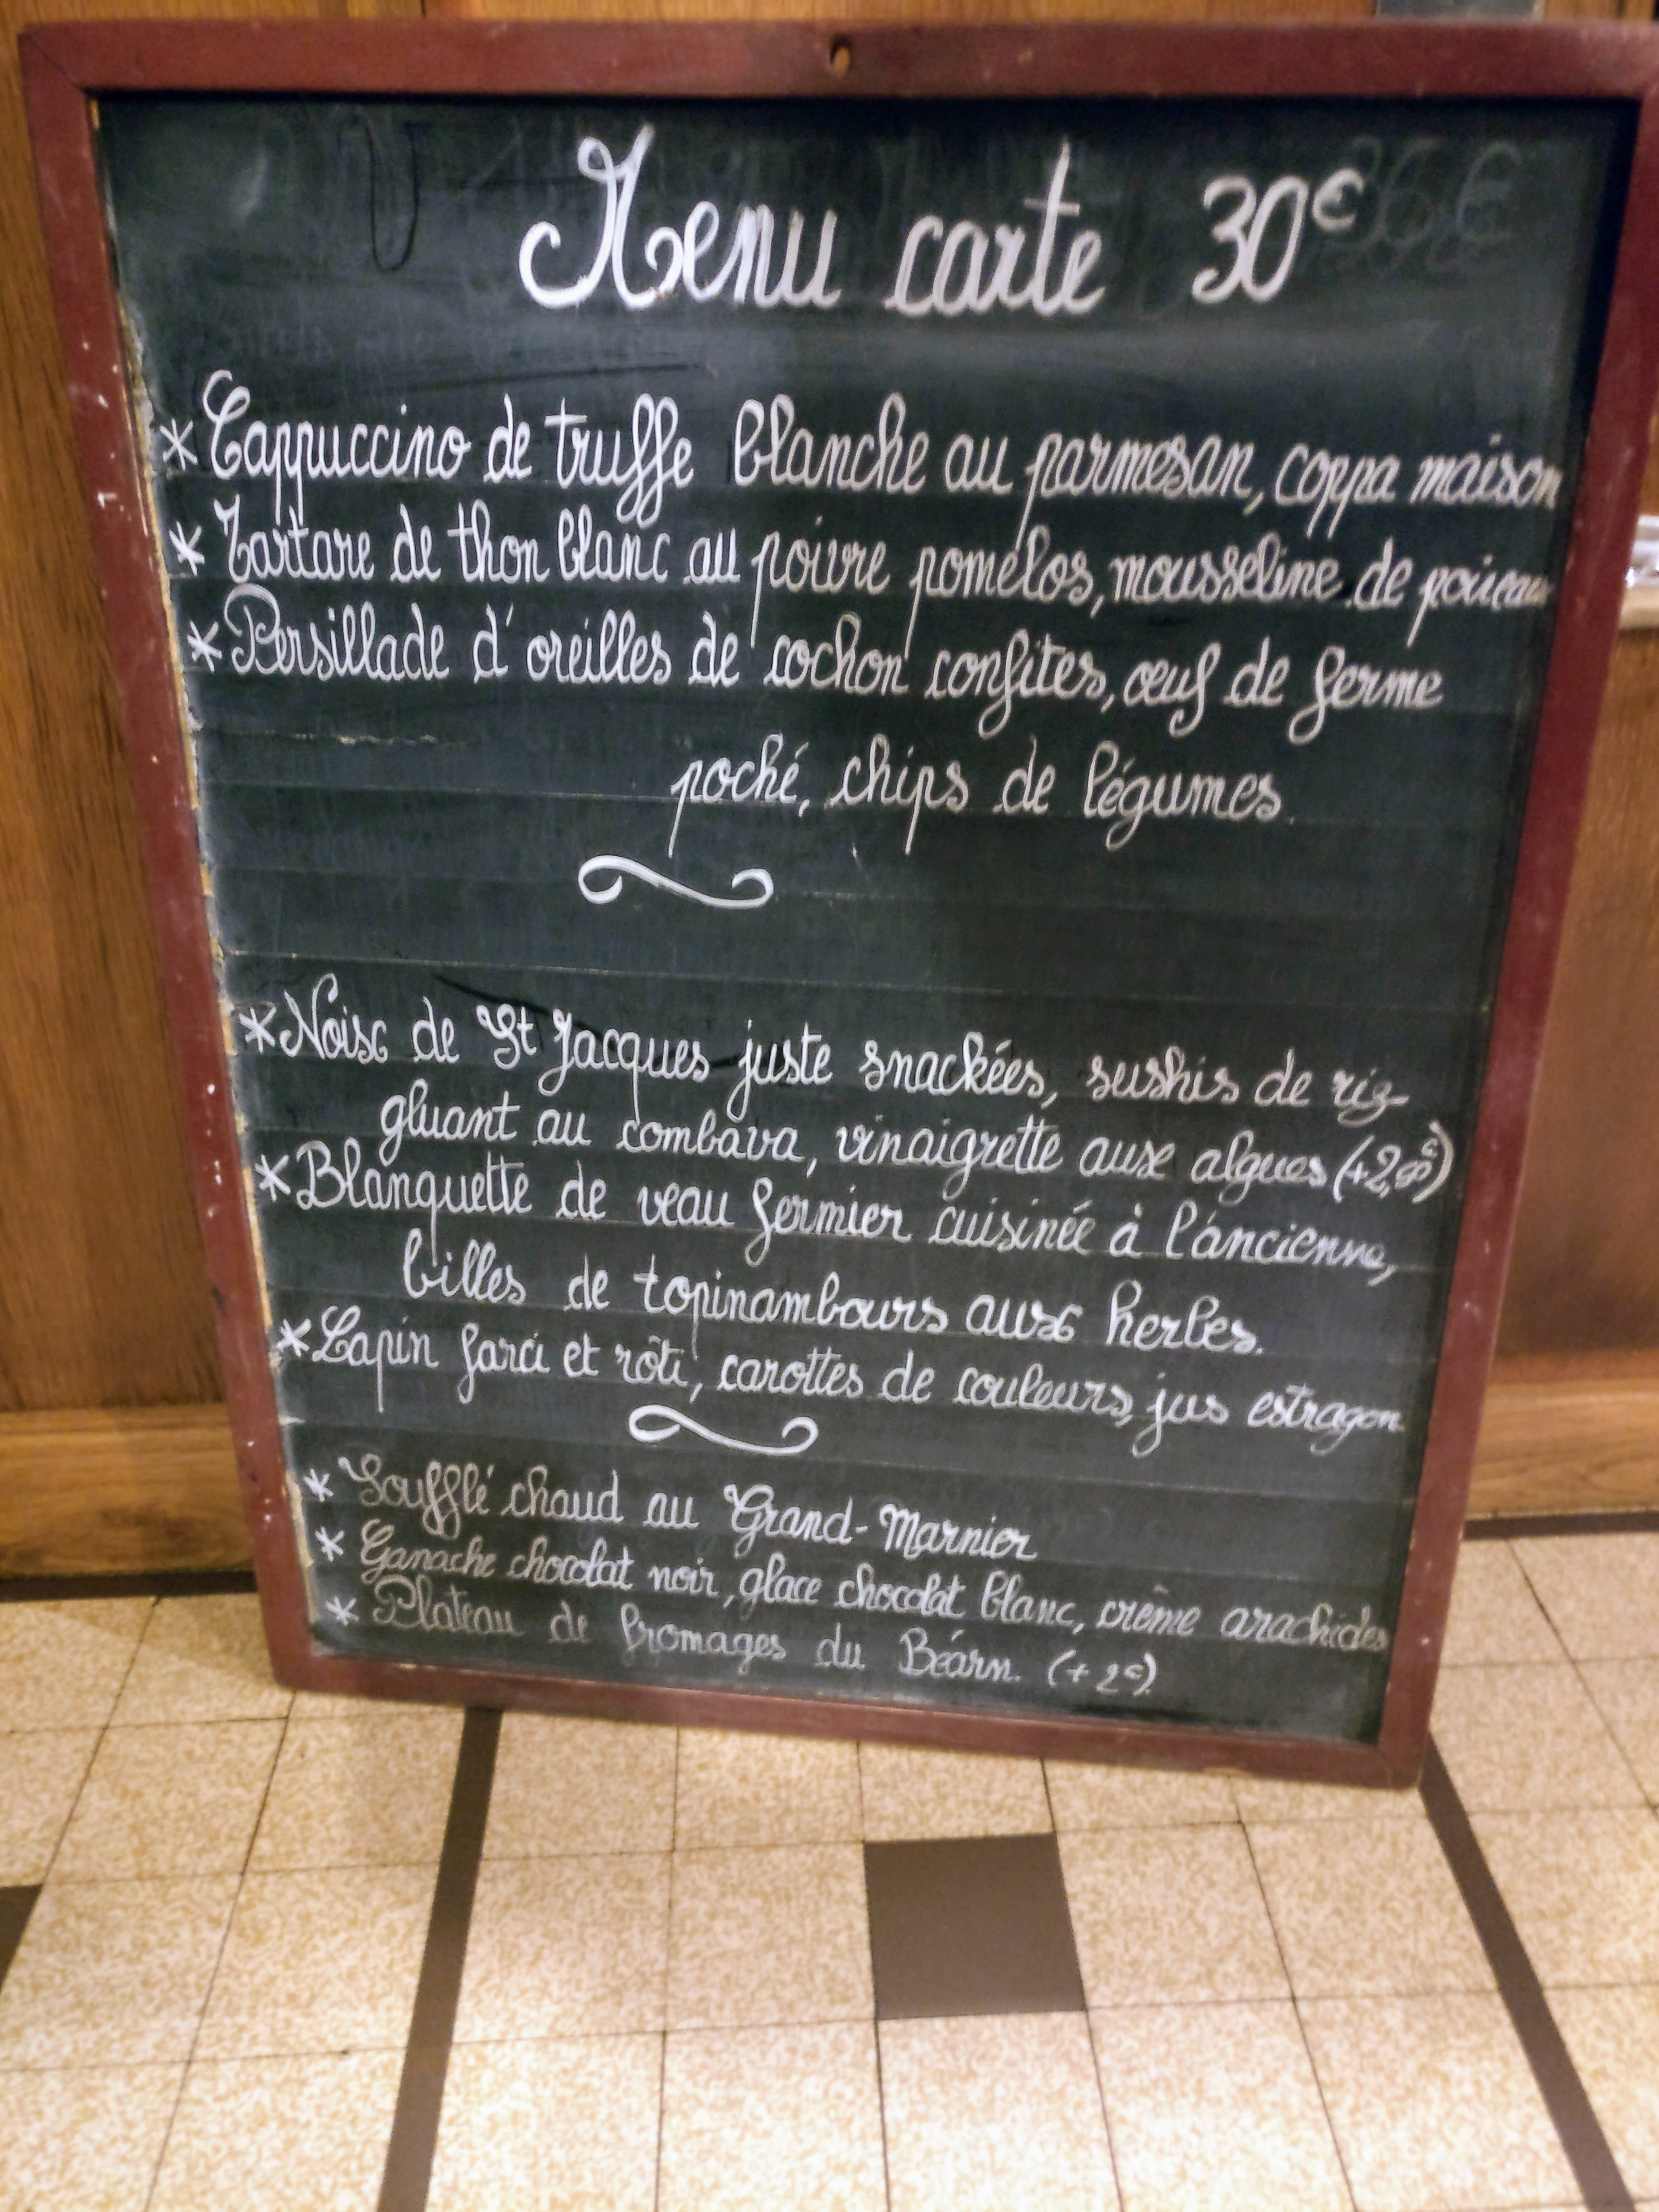 Menu carte 30€
* Cappuccino de truffe blanche au parmesan, coppa maison
* Tartare de thon blanc au poivre pomélos, mousseline de poireau
* Persillade d'oreilles de cochon confites, œuf de ferme
poché, chips de légumes.
* Noix de St Jacques juste snackées, sushis de riz
gluant au combava, vinaigrette aux algues
* Blanquette de veau fermier cuisinée à l'ancienne,
billes de topinambours aux herbes.
* Lapin farci et rôti, carottes de couleurs, jus estragon
* Soufflé chaud au Grand-Marnier
* Ganache chocolat noir, glace chocolat blanc, crème arachides
* Plateau de fromages du Béarn. (+2€)